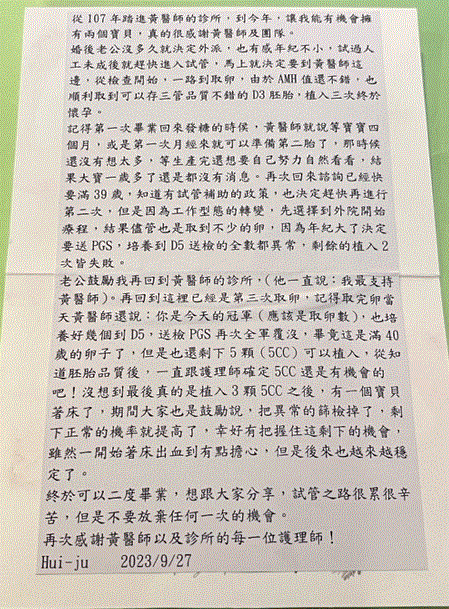 從 107 年踏進黃醫師的診所，到今年，讓我能有機會擁
有兩個寶貝，真的很感謝黃醫師及團隊。
婚後老公沒多久就決定外派，也有感年紀不小，試過人
工未成後就趕快進入試管，馬上就決定要到黃醫師這
邊，從檢查開始，一路到取卵，由於 AMH 值還不錯，也
順利取到可以存三管品質不錯的 D3 胚胎，植入三次終於
懷孕。
記得第一次畢業回來發糖的時侯，黃醫師就說等寶寶四
個月，或是第一次月經來就可以準備第二胎了，那時候
還沒有想太多，等生產完還想要自己努力自然看看，結
果大寶一歲多了還是都沒有消息。再次回來諮詢已經快
要滿 39 歲，知道有試管補助的政策，也決定趕快再進行
第二次，但是因為工作型態的轉變，先選擇到外院開始
療程，結果儘管也是取到不少的卵，因為年紀大了決定
要送 PGS，培養到 D5 送檢的全數都異常，剩餘的植入 2
次皆失敗。
老公鼓勵我再回到黃醫師的診所，(他一直說：我最支持
黃醫師)。再回到這裡已經是第三次取卵，記得取完卵當
天黃醫師還說：你是今天的冠軍（應該是取卵數），也培
養好幾個到 D5，送檢 PGS 再次全軍覆沒，畢竟這是滿 40
歲的卵子了，但是也還剩下 5 顆（5CC）可以植入，從知
道胚胎品質後，一直跟護理師確定 5CC 還是有機會的
吧！沒想到最後真的是植入 3 顆 5CC 之後，有一個寶貝
著床了，期間大家也是鼓勵說，把異常的篩檢掉了，剩
下正常的機率就提高了，幸好有把握住這剩下的機會，
雖然一開始著床出血到有點擔心，但是後來也越來越穩
定了。
終於可以二度畢業，想跟大家分享，試管之路很累很辛
苦，但是不要放棄任何一次的機會。
再次感謝黃醫師以及診所的每一位護理師！
Hui-ju 2023/9/27